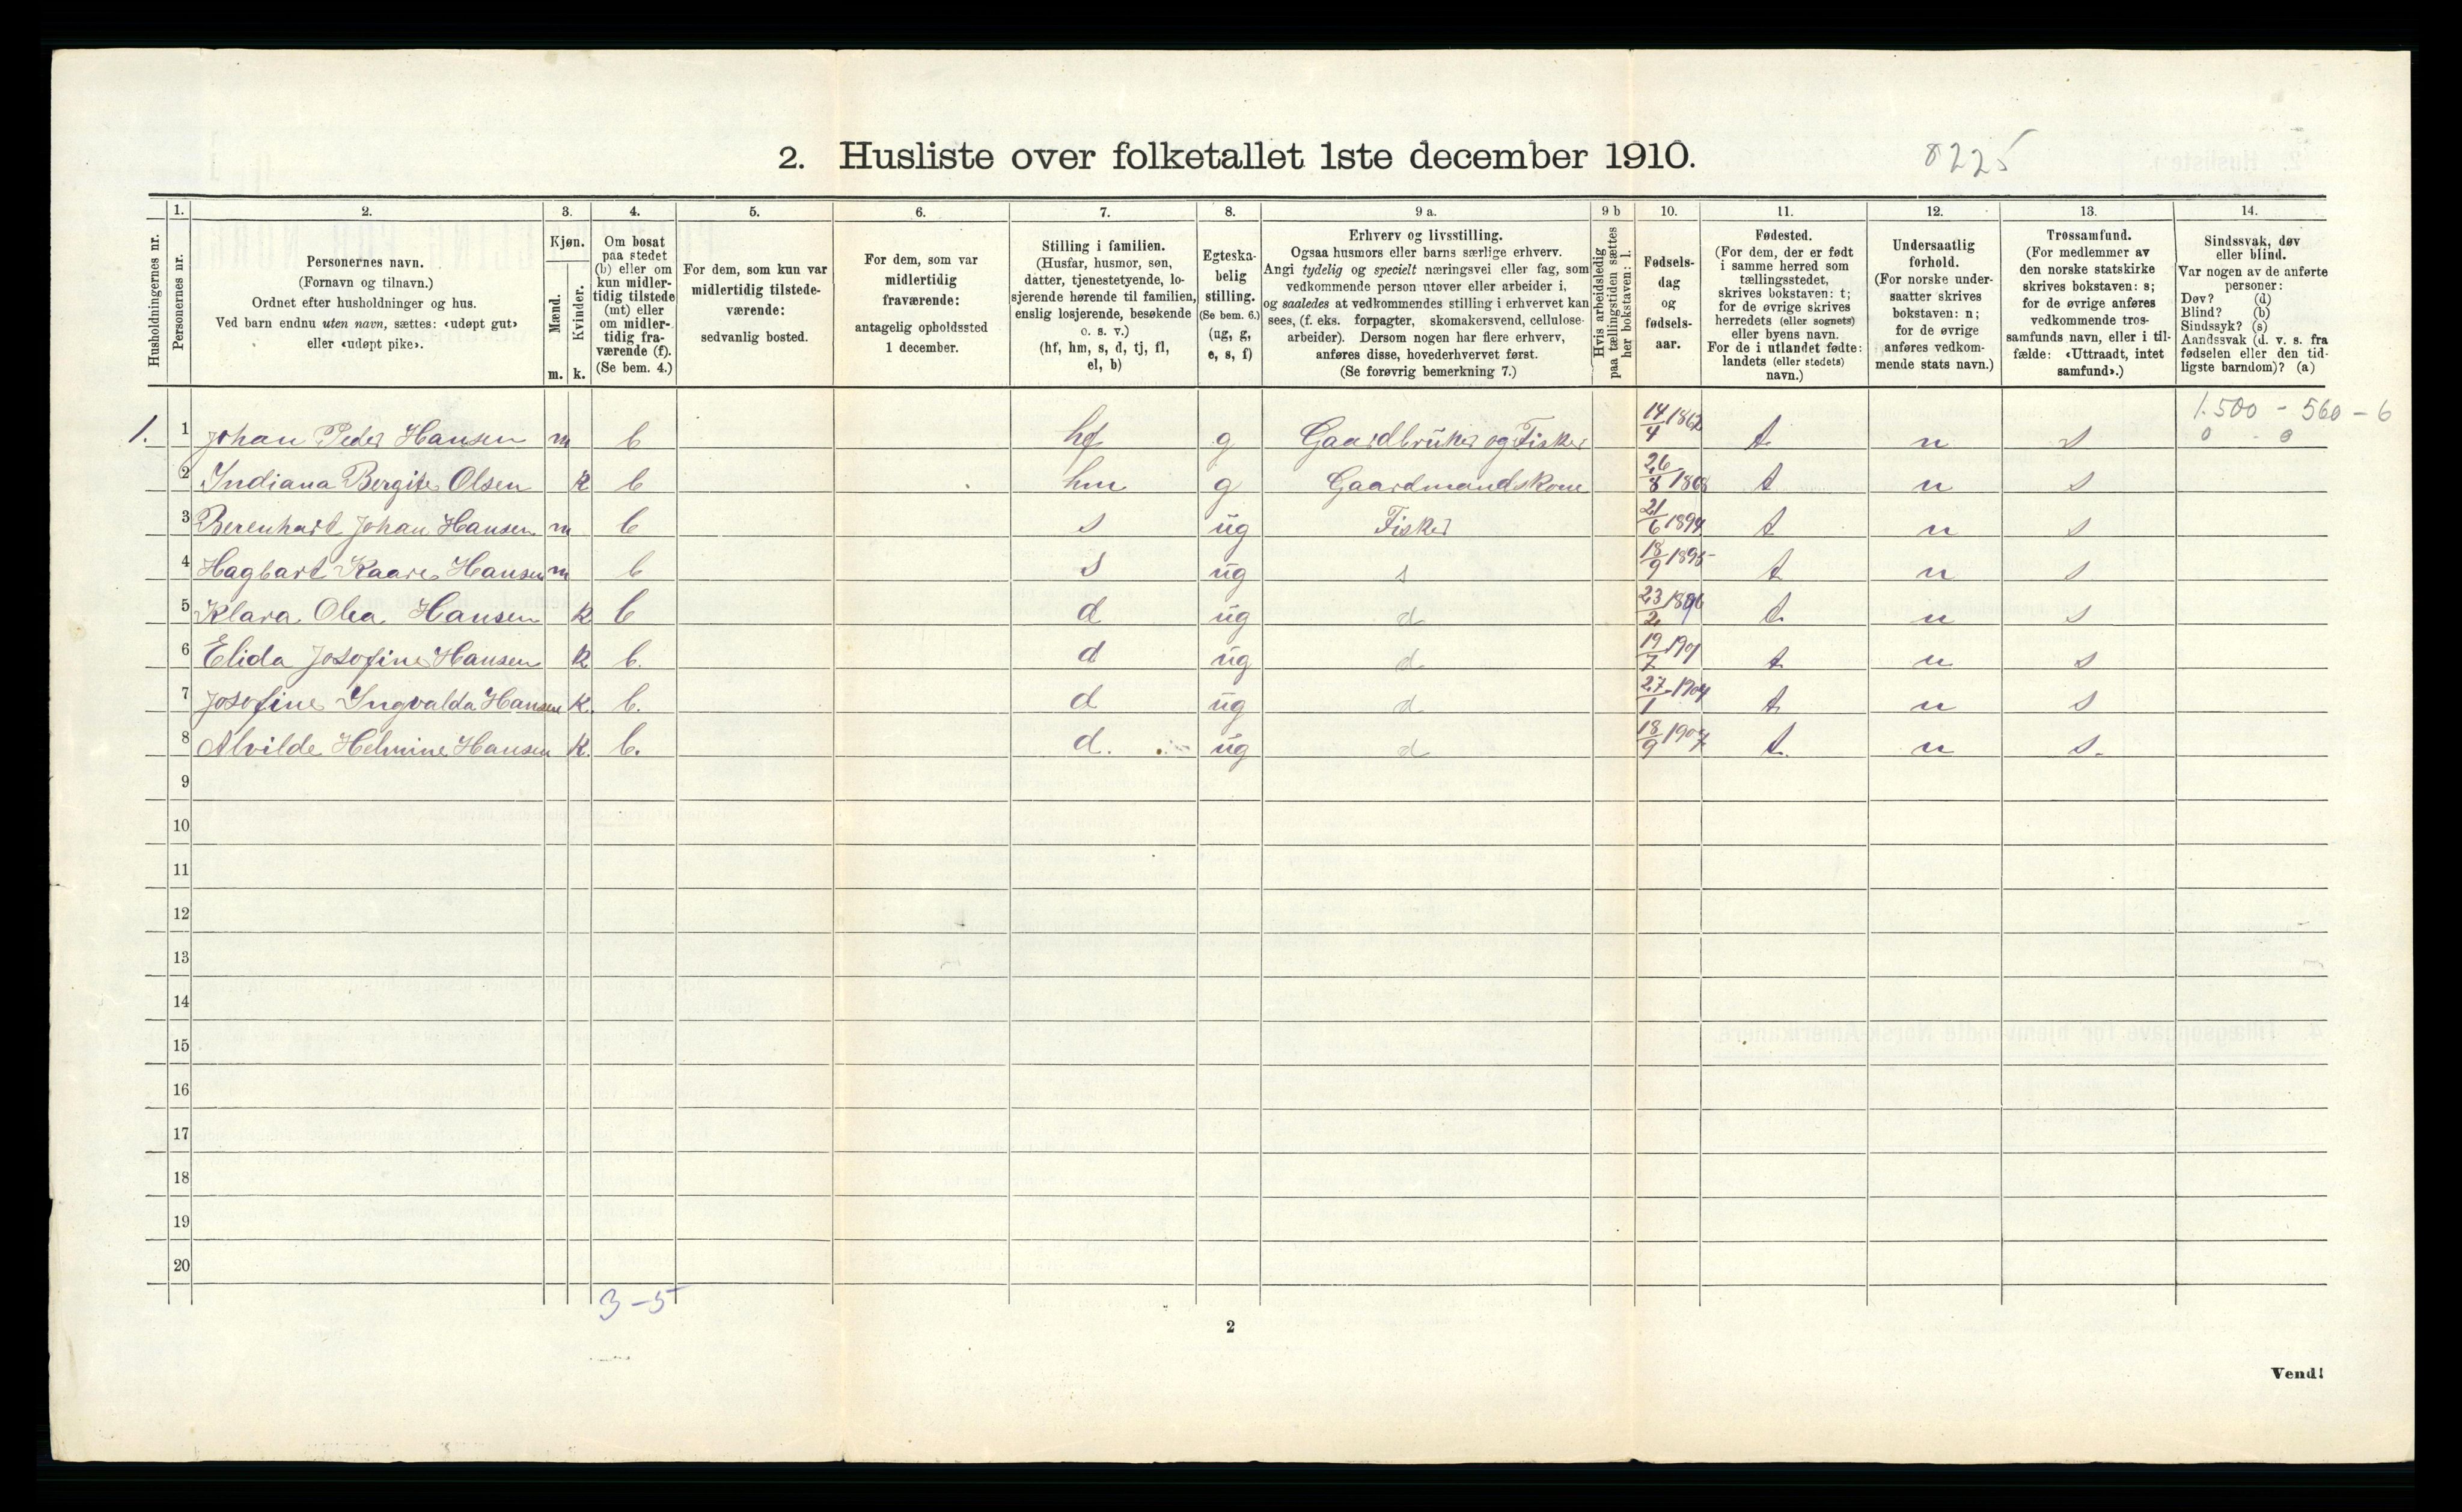 2. Husliste over folketallet 1ste december 1910.
8225
Husholdningernes nr.
1.
Personernes nr.
2.
Personernes navn.
(Fornavn og tilnavn.)
Ordnet efter husholdninger og hus.
Ved barn endnu uten navn, sættes: «udøpt gut»
eller «udøpt pike».
3.
Kjøn.
Mænd.
Kvinder.
m. k.
4.
Om bosat
paa stedet
(b) eller om
kun midler-
tidig tilstede
(mt) eller
om midler-
tidig fra-
værende (f).
(Se bem. 4.)
5.
For dem, som kun var
midlertidig tilstede-
værende:
sedvanlig bosted.
6.
For dem, som var
midlertidig
fraværende:
antagelig opholdssted
1 december.
7.
Stilling i familien.
(Husfar, husmor, søn,
datter, tjenestetyende, lo-
sjerende hørende til familien,
enslig losjerende, besøkende
o. s. v.)
(hf, hm, s, d, tj, fl,
el, b)
8.
Egteska-
belig
stilling.
(Se bem. 6.)
(ug, g,
e, s, f)
9 a.
Erhverv og livsstilling.
Ogsaa husmors eller barns særlige erhverv.
Angi tydelig og specielt næringsvei eller fag, som
vedkommende person utøver eller arbeider i,
og saaledes at vedkommendes stilling i erhvervet kan
sees, (f. eks. forpagter, skomakersvend, cellulose-
arbeider). Dersom nogen har flere erhverv,
anføres disse, hovederhvervet først.
(Se forøvrig bemerkning 7.)
9 b
Hvis arbeidsledig
paa tællingstiden sættes
her bokstaven: l.
10.
Fødsels-
dag
og
fødsels-
aar.
11.
Fødested.
(For dem, der er født
i samme herred som
tællingsstedet,
skrives bokstaven: t;
for de øvrige skrives
herredets (eller sognets)
eller byens navn.
For de i utlandet fødte:
landets (eller stedets)
navn.)
12.
Undersaatlig
forhold.
(For norske under-
saatter skrives
bokstaven: n;
for de øvrige
anføres vedkom-
mende stats navn.)
13.
Trossamfund.
(For medlemmer av
den norske statskirke
skrives bokstaven: s;
for de øvrige anføres
vedkommende tros-
samfunds navn, eller i til-
fælde: «Uttraadt, intet
samfund».)
14.
Sindssvak, døv
eller blind.
Var nogen av de anførte
personer:
Døv? (d)
Blind? (b)
Sindssyk? (s)
Aandssvak (d. v. s. fra
fødselen eller den tid-
ligste barndom)? (a)
1.500 - 560 - 6
0 - 0
1. 1 Johan Peder Hansen m b hf g Gaardbruker og Fisker 14/4 1862 t n s
2 Indiana Bergite Olsen k b hm g Gaardmandskone 26/8 1868 t n s
3 Berenhart Johan Hansen m b s ug Fisker 21/6 1894 t n s
4 Hagbart Kaare Hansen m b s ug s 18/9 1895 t n s
5 Klara Olea Hansen k b d ug d 23/2 t n s
6 Elida Josofine Hansen k b. d ug d 19/7 1901 t n s
7 Josofine Ingvalda Hansen k. b. d ug d 27/1 1904 t n s
8 Alvilde Helmine Hansen k. b. d. ug d 18/9 1907 t. n s.
9
10
11
12
13
14
15
16
17
18
19
20
3-5
2
Vend!